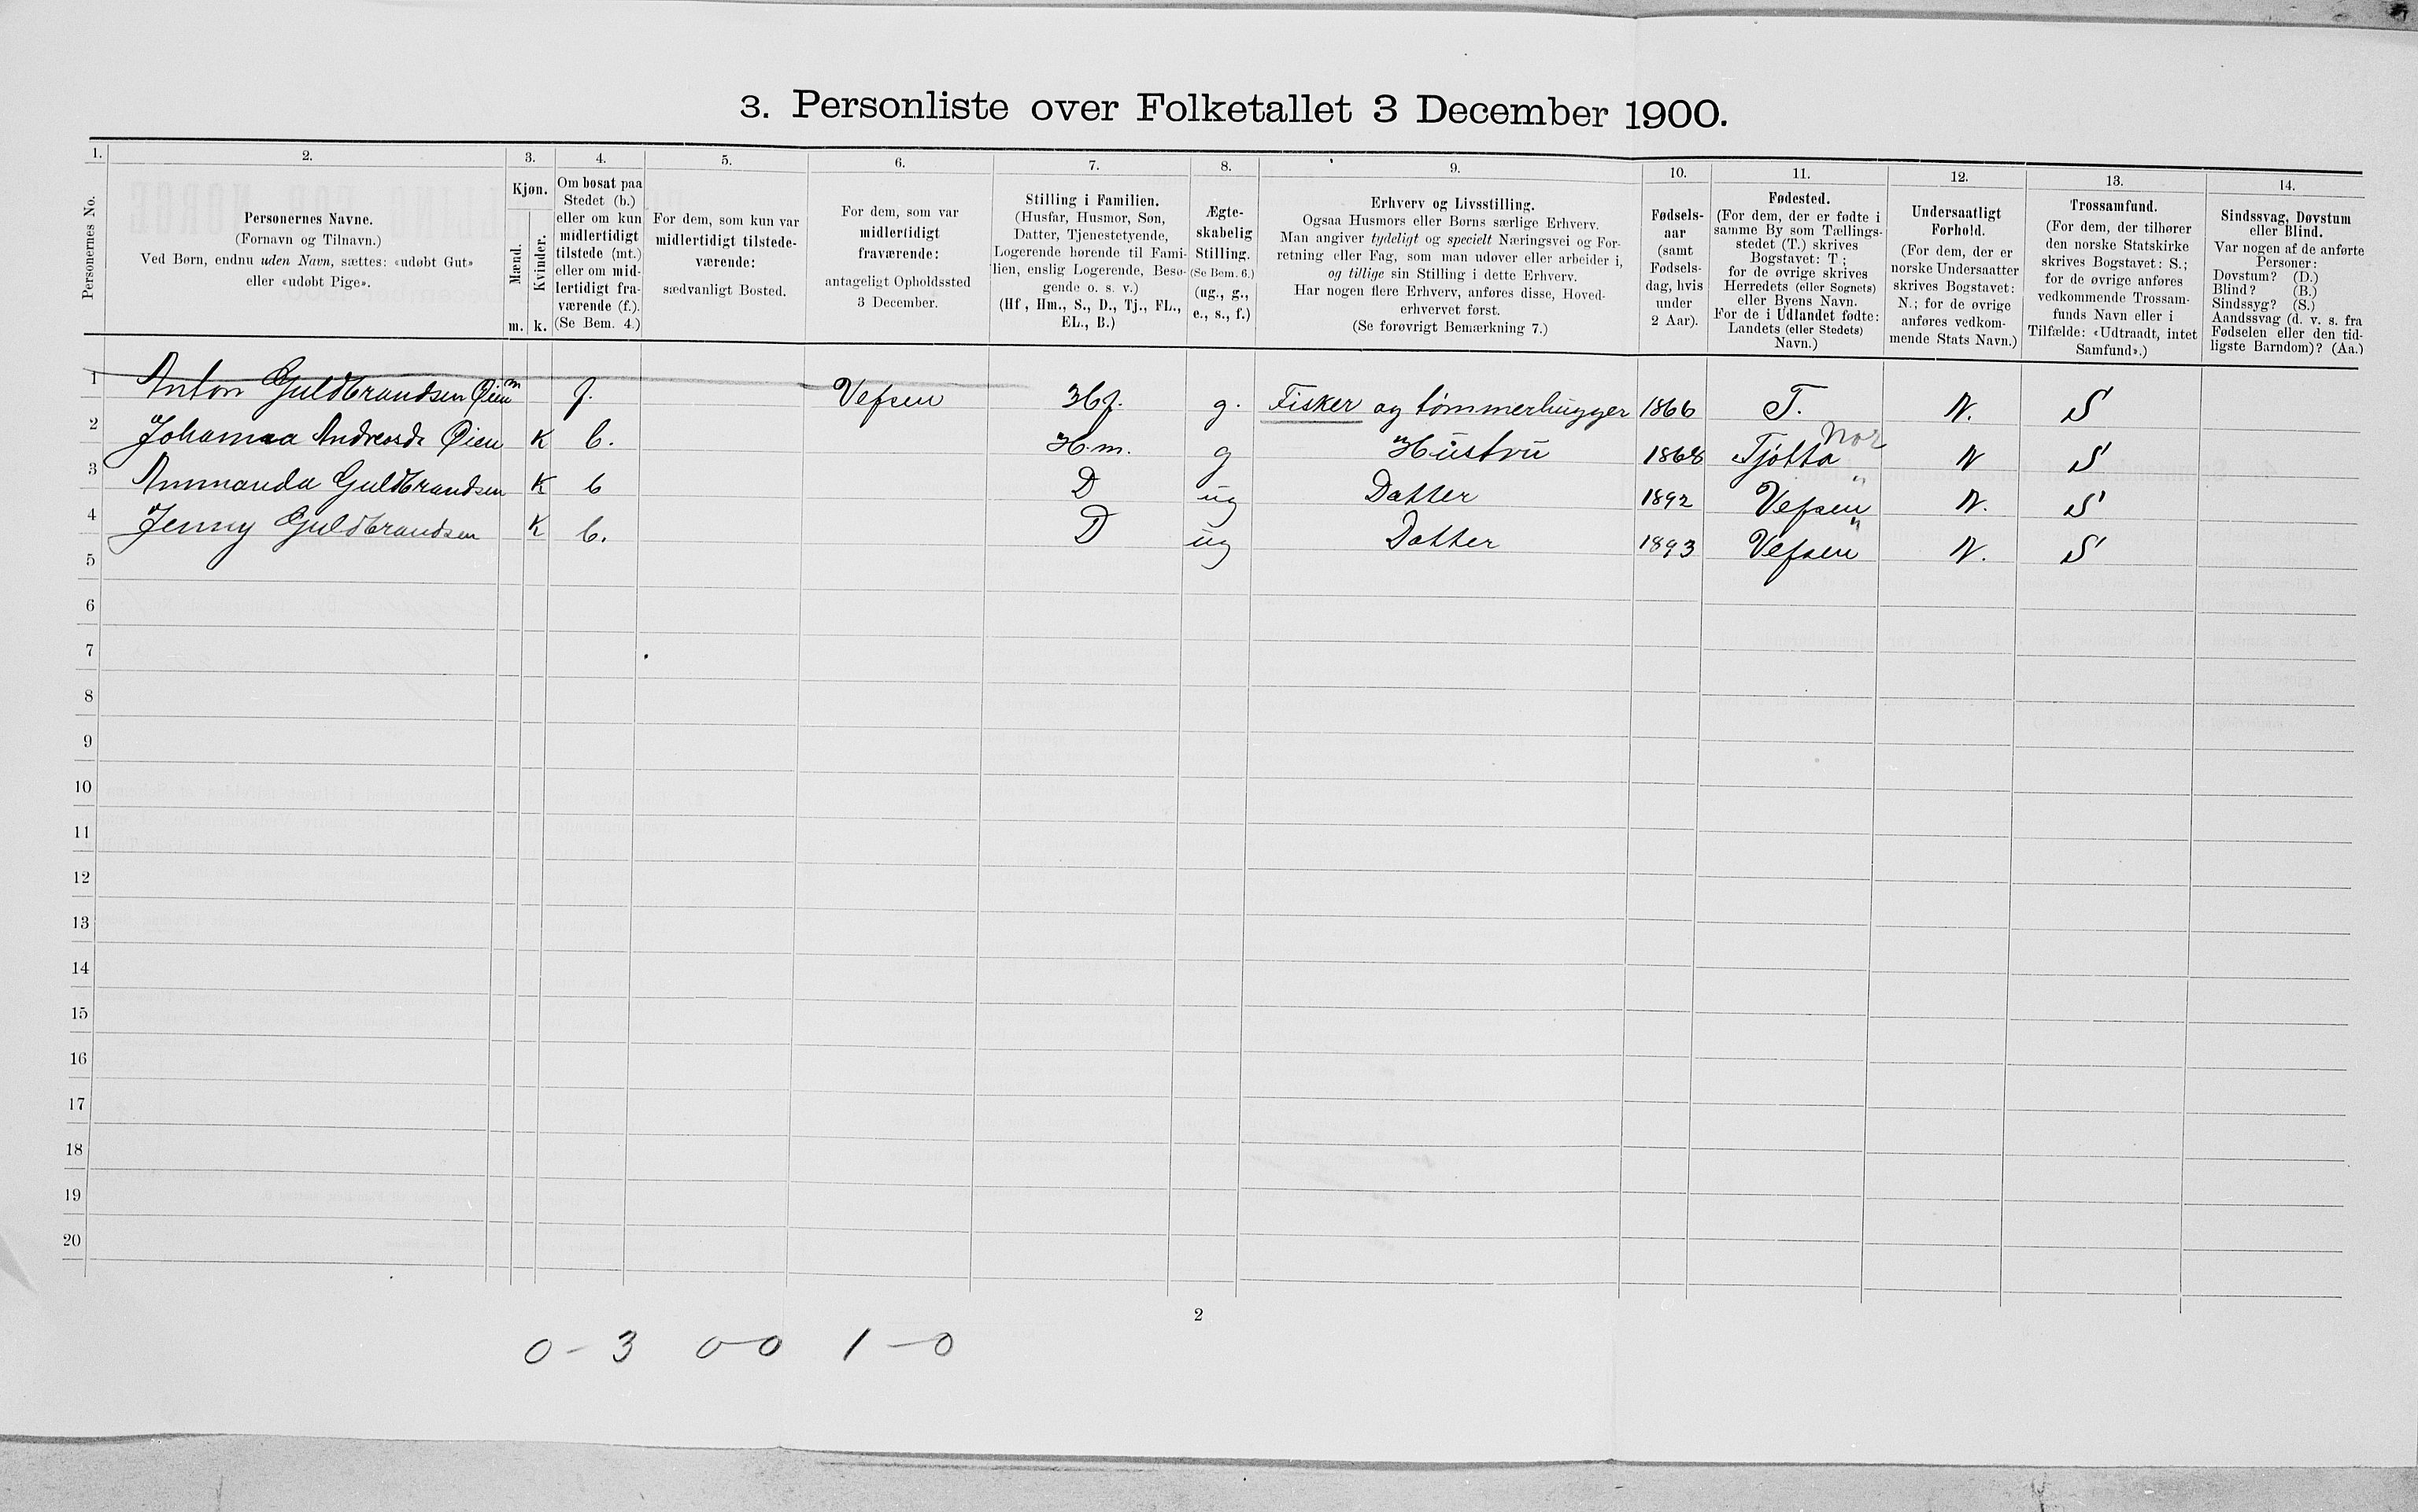 3. Personliste over Folketallet 3 December 1900.
1. 2. 3. 4. 5. 6. 7. 8. 9. 10. 11. 12. 13. 14.
Personernes No.
Personernes Navne.
(Fornavn og Tilnavn.)
Ved Børn, endnu uden Navn, sættes: «udøbt Gut»
eller «udøbt Pige».
Kjøn.
Mænd.
Kvinder.
m. k.
Om bosat paa
Stedet (b.)
eller om kun
midlertidigt
tilstede (mt.)
eller om mid-
lertidigt fra-
værende (f.).
(Se Bem. 4.)
For dem, som kun var
midlertidigt tilstede-
værende:
sædvanligt Bosted.
For dem, som var
midlertidigt
fraværende:
antageligt Opholdssted
3 December.
Stilling i Familien.
(Husfar, Husmor, Søn,
Datter, Tjenestetyende,
Logerende hørende til Fami-
lien, enslig Logerende, Besø-
gende o. s. v.)
(Hf, Hm., S., D., Tj., FL.,
EL., B.)
Ægte-
skabelig
Stilling.
(Se Bem. 6.)
(ug., g.,
e., s., f.)
Erhverv og Livsstilling.
Ogsaa Husmors eller Børns særlige Erhverv.
Man angiver tydeligt og specielt Næringsvei og For-
retning eller Fag, som man udøver eller arbeider i,
og tillige sin Stilling i dette Erhverv.
Har nogen flere Erhverv, anføres disse, Hoved-
erhvervet først.
(Se forøvrigt Bemærkning 7.)
Fødsels-
aar
(samt
Fødsels-
dag, hvis
under
2 Aar).
Fødested.
(For dem, der er fødte i
samme By som Tællings-
stedet (T.) skrives
Bogstavet: T;
for de øvrige skrives
Herredets (eller Sognets)
eller Byens Navn.
For de i Udlandet fødte:
Landets (eller Stedets)
Navn.)
Undersaatligt
Forhold.
(For dem, der er
norske Undersaatter
skrives Bogstavet:
N.; for de øvrige
anføres vedkom-
mende Stats Navn.)
Trossamfund.
(For dem, der tilhører
den norske Statskirke
skrives Bogstavet: S.;
for de øvrige anføres
vedkommende Trossam-
funds Navn eller i
Tilfælde: «Udtraadt, intet
Samfund».)
Sindssvag, Døvstum
eller Blind.
Var nogen af de anførte
Personer:
Døvstum? (D.)
Blind? (B.)
Sindssyg? (S.)
Aandssvag (d. v. s. fra
Fødselen eller den tid-
ligste Barndom)? (Aa.)
1 Anton Guldbrandsen Øien m f. Vefsen Hf. g. Fisker og tømmerhugger 1866 T. N. S
2 Johanna Andreasdr Øien K b. Hm. g Hustru 1868 Tjøtta Nor N S
3 Ammanda Guldbrandsen K b D ug Datter 1892 Vefsen " N. S
4 Jenny Guldbrandsen K b. D ug Datter 1893 Vefsen " N. S
5
6
7
8
9
10
11
12
13
14
15
16
17
18
19
20
2
0-3 0-0 1-0